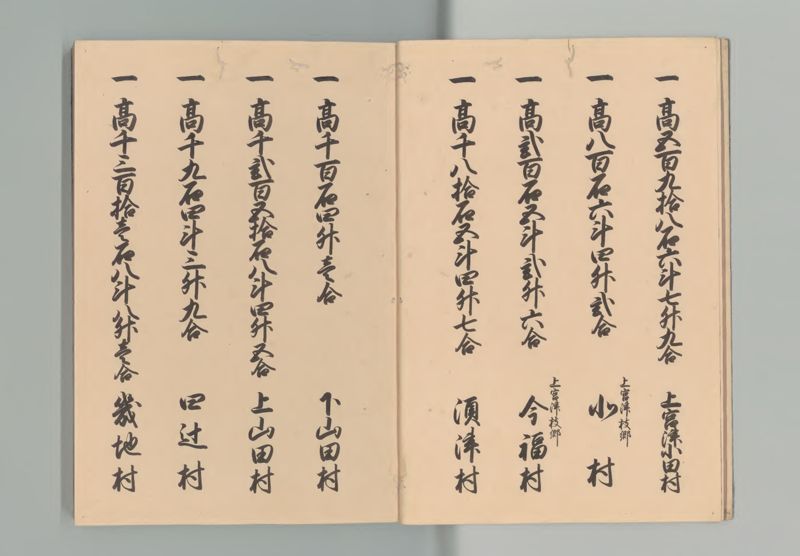 一高五百九拾八石六斗七升九合 上宮津小田村
一高八百石六斗四升弐合 上宮津枝郷 小村
一高弐百石五斗弐升六合 上宮津枝郷 今福村
一高千八拾石五斗四升七合 須津村
一高千百石四升壱合 下山田村
一高千弐百五拾石八斗四升五合 上山田村
一高千九石四斗三升九合 四辻村
一高千三百拾壱石八斗八升壱合 幾地村